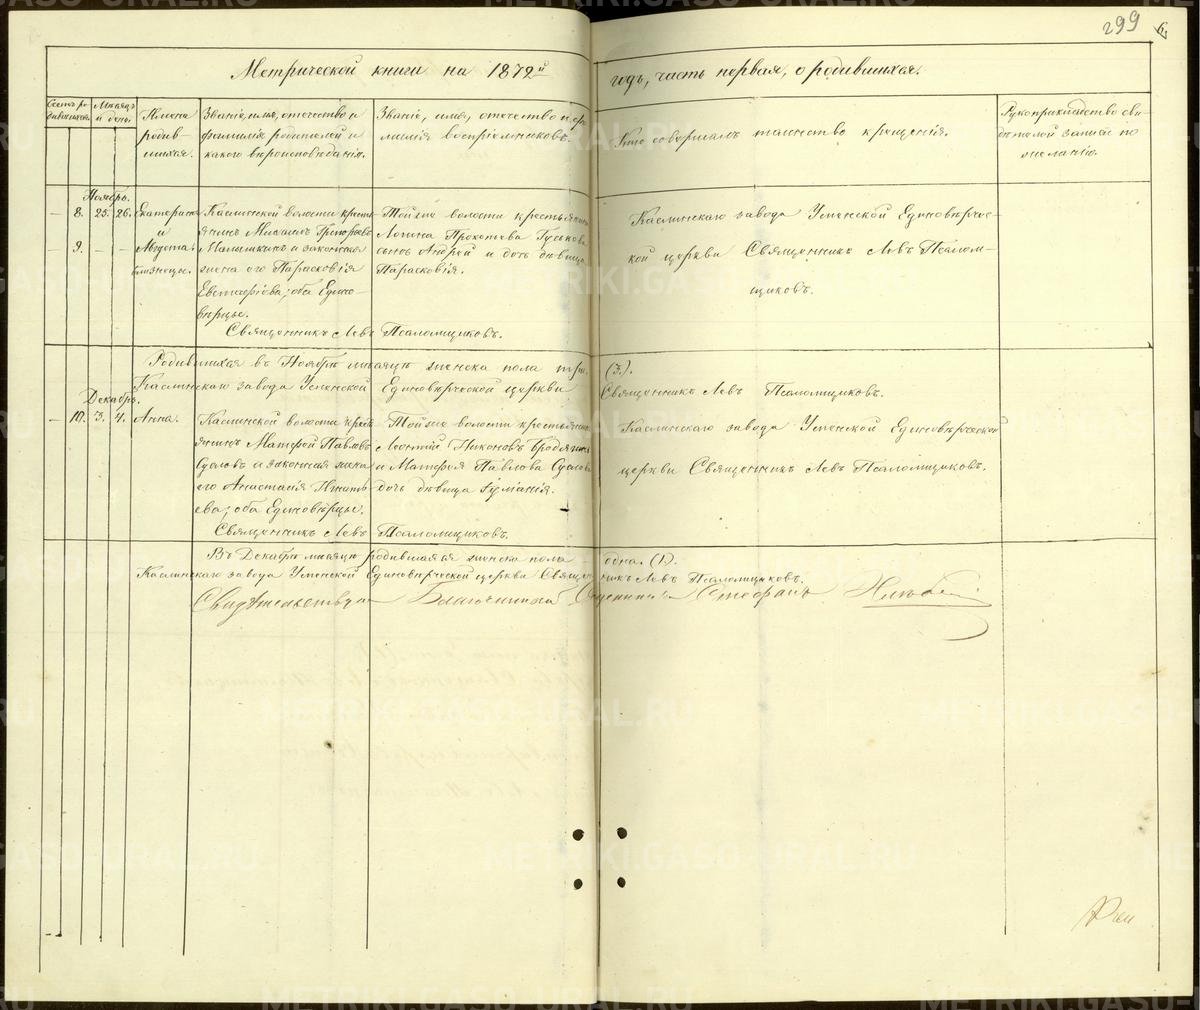 299
6.
Метрической книги на 1872й годъ, часть первая, о родившихся.
Счетъ родившихся.
Мѣсяцъ и день.
Имена родившихся.
Званіе, имя, отчество и фамилія родителей и какого вѣроисповѣданія.
Званіе, имя, отчество и фамилія воспріемниковъ.
Кто совершалъ таинство крещенія.
Рукоприкладство свидѣтелей записи по желанію.
Ноябрь.
8. 25. 26.
9.
Екатерина
и
Августа.
близнецы.
Каслинской волости кресть-
янинъ Михаилъ Григорьевъ
Малышкинъ и законная
жена его Парасковія
Евстафіева; оба Едино-
вѣрцы.
Тойже волости крестьянина
Логина Прокопева Гуськова
сынъ Андрей и дочь дѣвица
Парасковія.
Каслинскаго завода Успенской Единовѣрчес-
кой церкви Священникъ Левъ Псалом-
щиковъ.
Священникъ Левъ Псаломщиковъ.
Родившихся въ Ноябрѣ мѣсяцѣ женска пола три (3.).
Каслинскаго завода Успенской Единовѣрческой церкви Священникъ Левъ Псаломщиковъ.
Декабрь.
10. 3. 4. Анна.
Каслинской волости крест-
янинъ Матфей Павловъ
Сусловъ и законная жена
его Анастасія Игнать-
ева; оба Единовѣрцы.
Тойже волости крестьянинъ
Леонтій Никоновъ
и Матфея Павлова Суслова
дочь дѣвица
Каслинскаго завода Успенской Единовѣрческой
церкви Священникъ Левъ Псаломщиковъ.
Священникъ Левъ Псаломщиковъ.
Въ Декабрѣ мѣсяцѣ родившаяся женска пола одна. (1.).
Каслинскаго завода Успенской Единовѣрческой церкви Священникъ Левъ Псаломщиковъ.
Свидѣтельствовалъ Благочинный Священникъ Стефанъ
METRIKI.GASO-URAL.RU